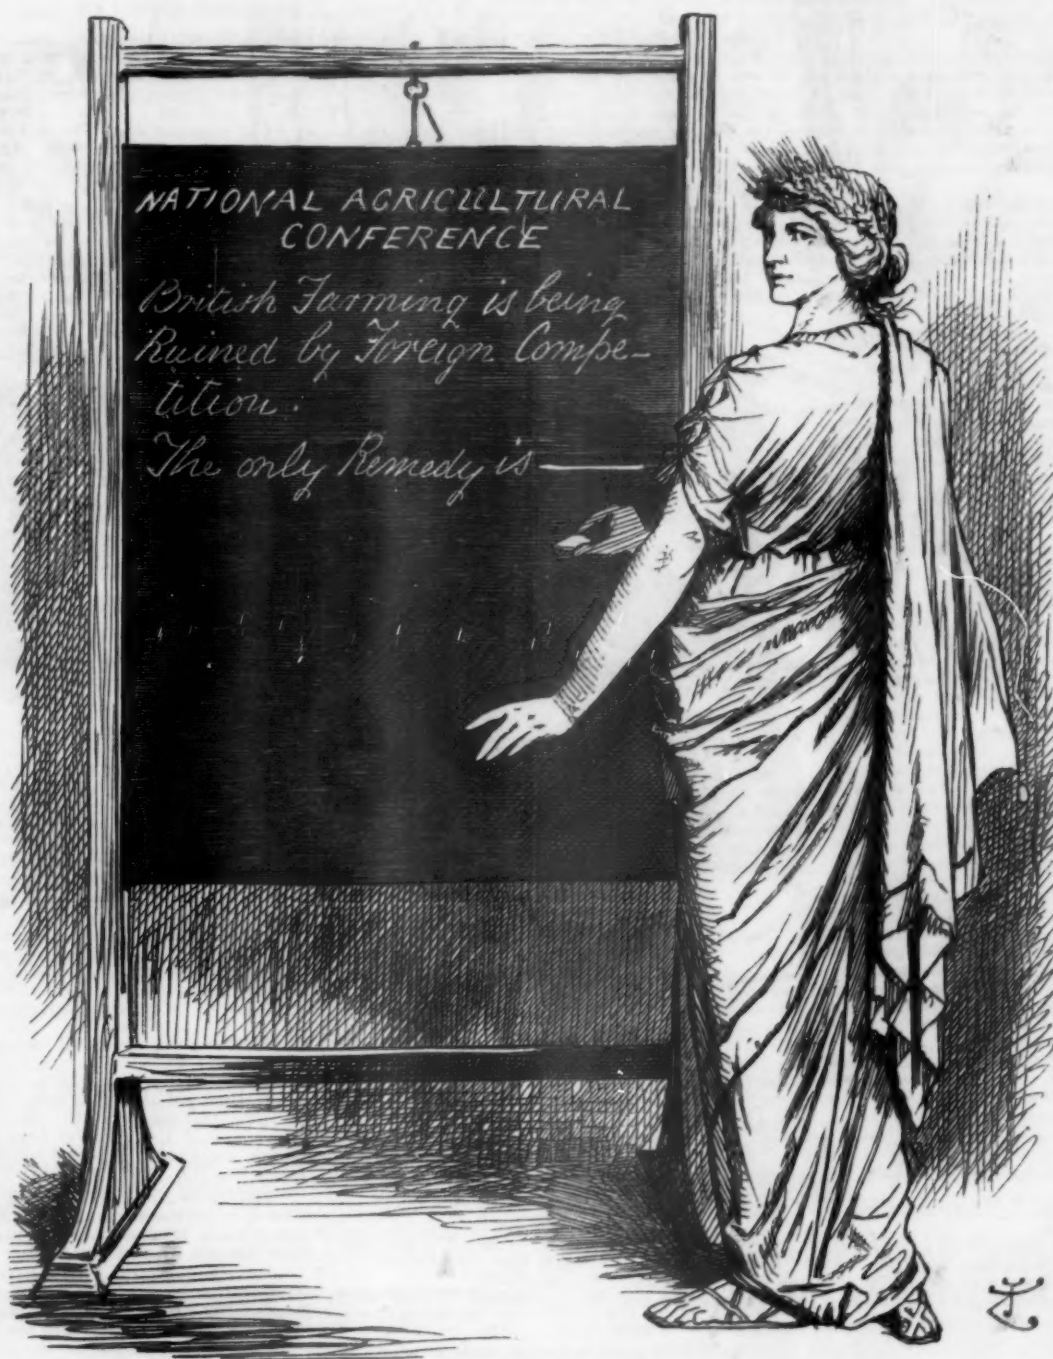 NATIONAL AGRICULTURAL
CONFERENCE
British Farming is being
Ruined by Foreign Compe-
tition.
The only Remedy is ——